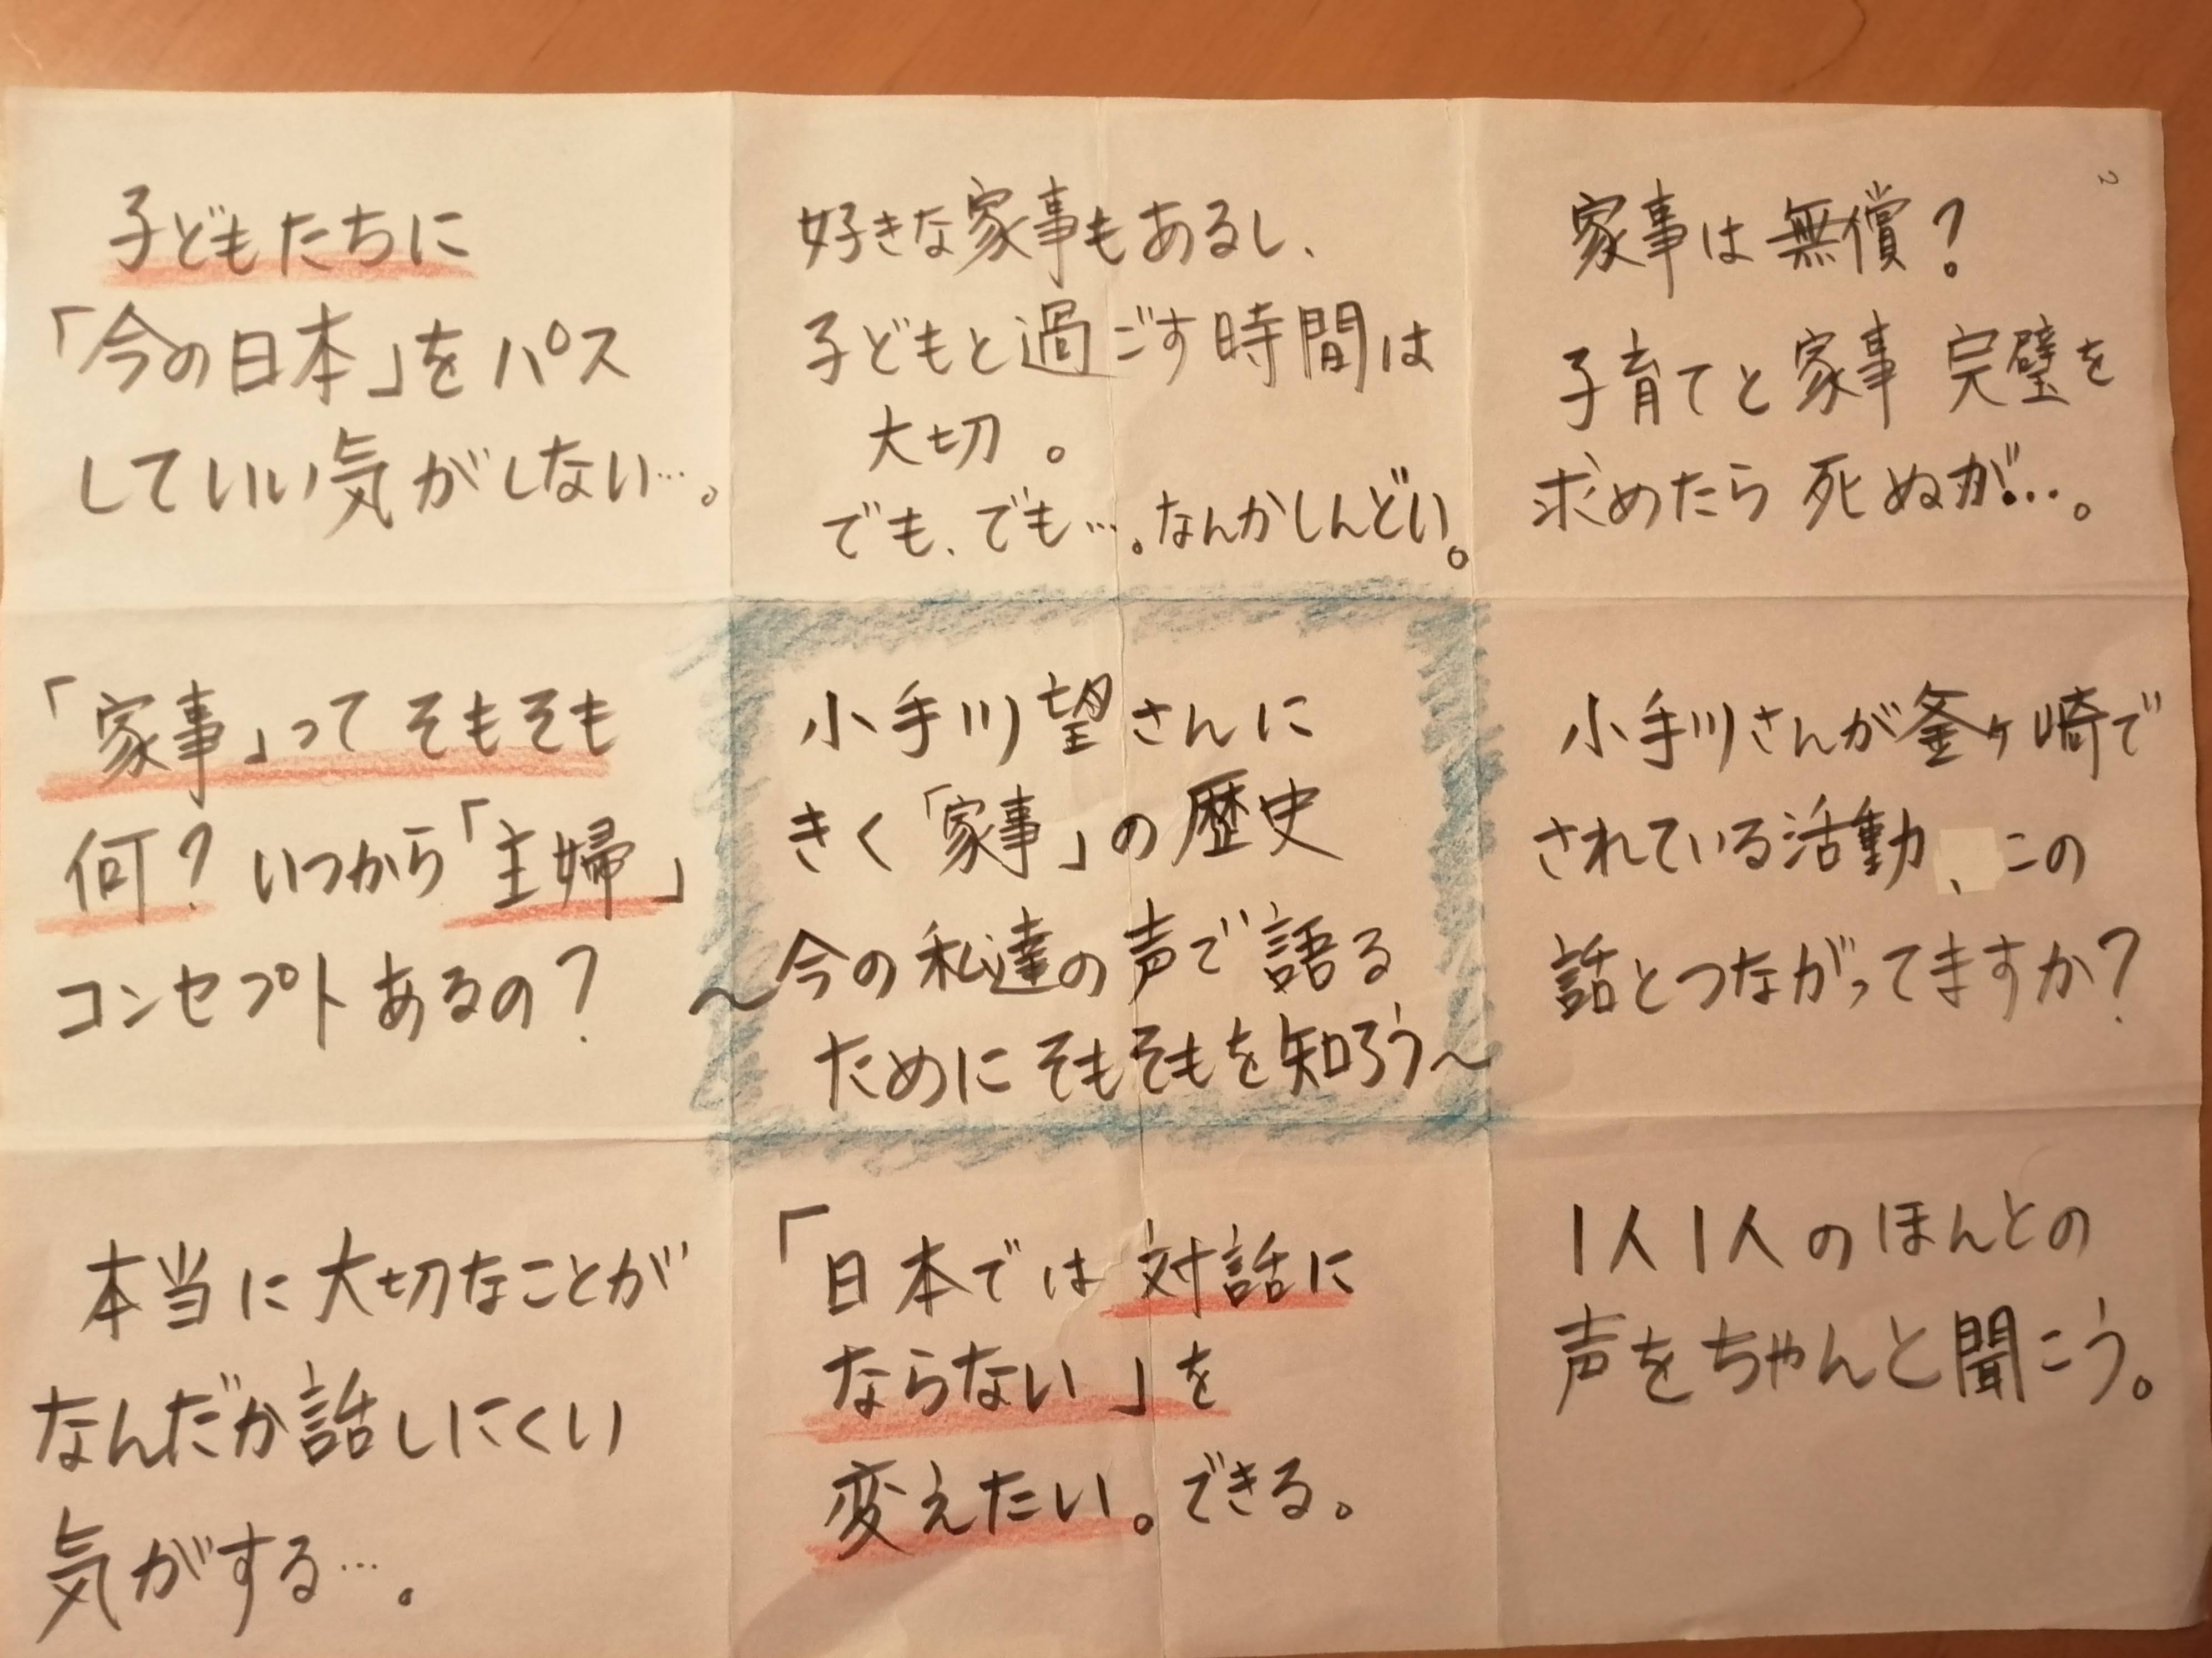 子どもたちに
「今の日本」をパス
していい気がしない…。
好きな家事もあるし、
子どもと過ごす時間は
大切。
でも、でも…。なんかしんどい。
家事は無償?
子育てと家事 完璧を
求めたら 死ぬが…。
「家事」って そもそも
何? いつから「主婦」
コンセプトあるの?
小手川望さんに
きく「家事」の歴史
〜今の私達の声で語る
ためにそもそもを知ろう〜
小手川さんが釜ヶ崎で
されている活動、この
話とつながってますか?
本当に大切なことが
なんだか話しにくい
気がする…。
「日本では対話に
ならない」を
変えたい。できる。
1人1人のほんとの
声をちゃんと聞こう。